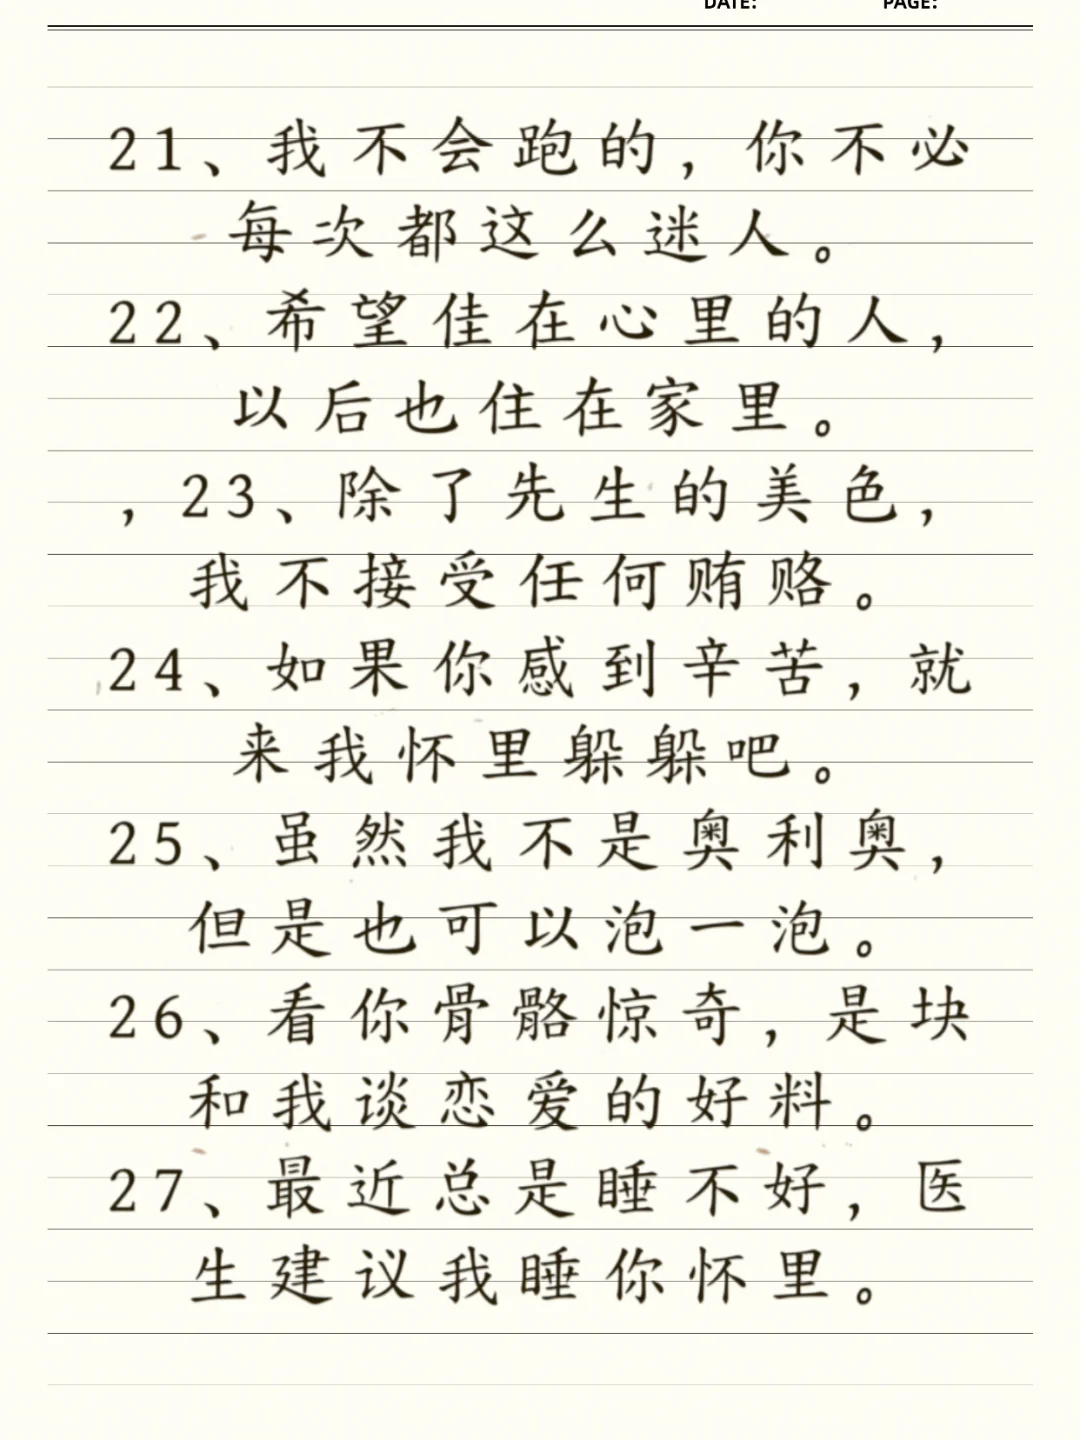 DATE: PAGE:
21、我不会跑的，你不必
每次都这么迷人。
22、希望佳在心里的人，
以后也住在家里。
，23、除了先生的美色，
我不接受任何贿赂。
24、如果你感到辛苦，就
来我怀里躲躲吧。
25、虽然我不是奥利奥，
但是也可以泡一泡。
26、看你骨骼惊奇，是块
和我谈恋爱的好料。
27、最近总是睡不好，医
生建议我睡你怀里。